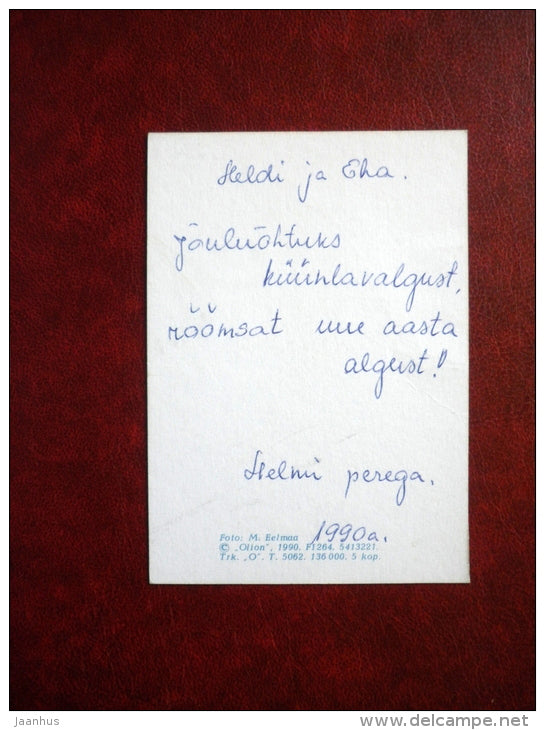 Heldi ja Eha.
Jõuluõhtuks
küünlavalgust,
rõõmsat uue aasta
algust!
Helmi perega.
1990a.
Foto: M. Eelmaa
© „Olion", 1990. F1264. 5413221.
Trk. „O". T. 5062. 136 000. 5 kop.
jaanhus
www.delcampe.net